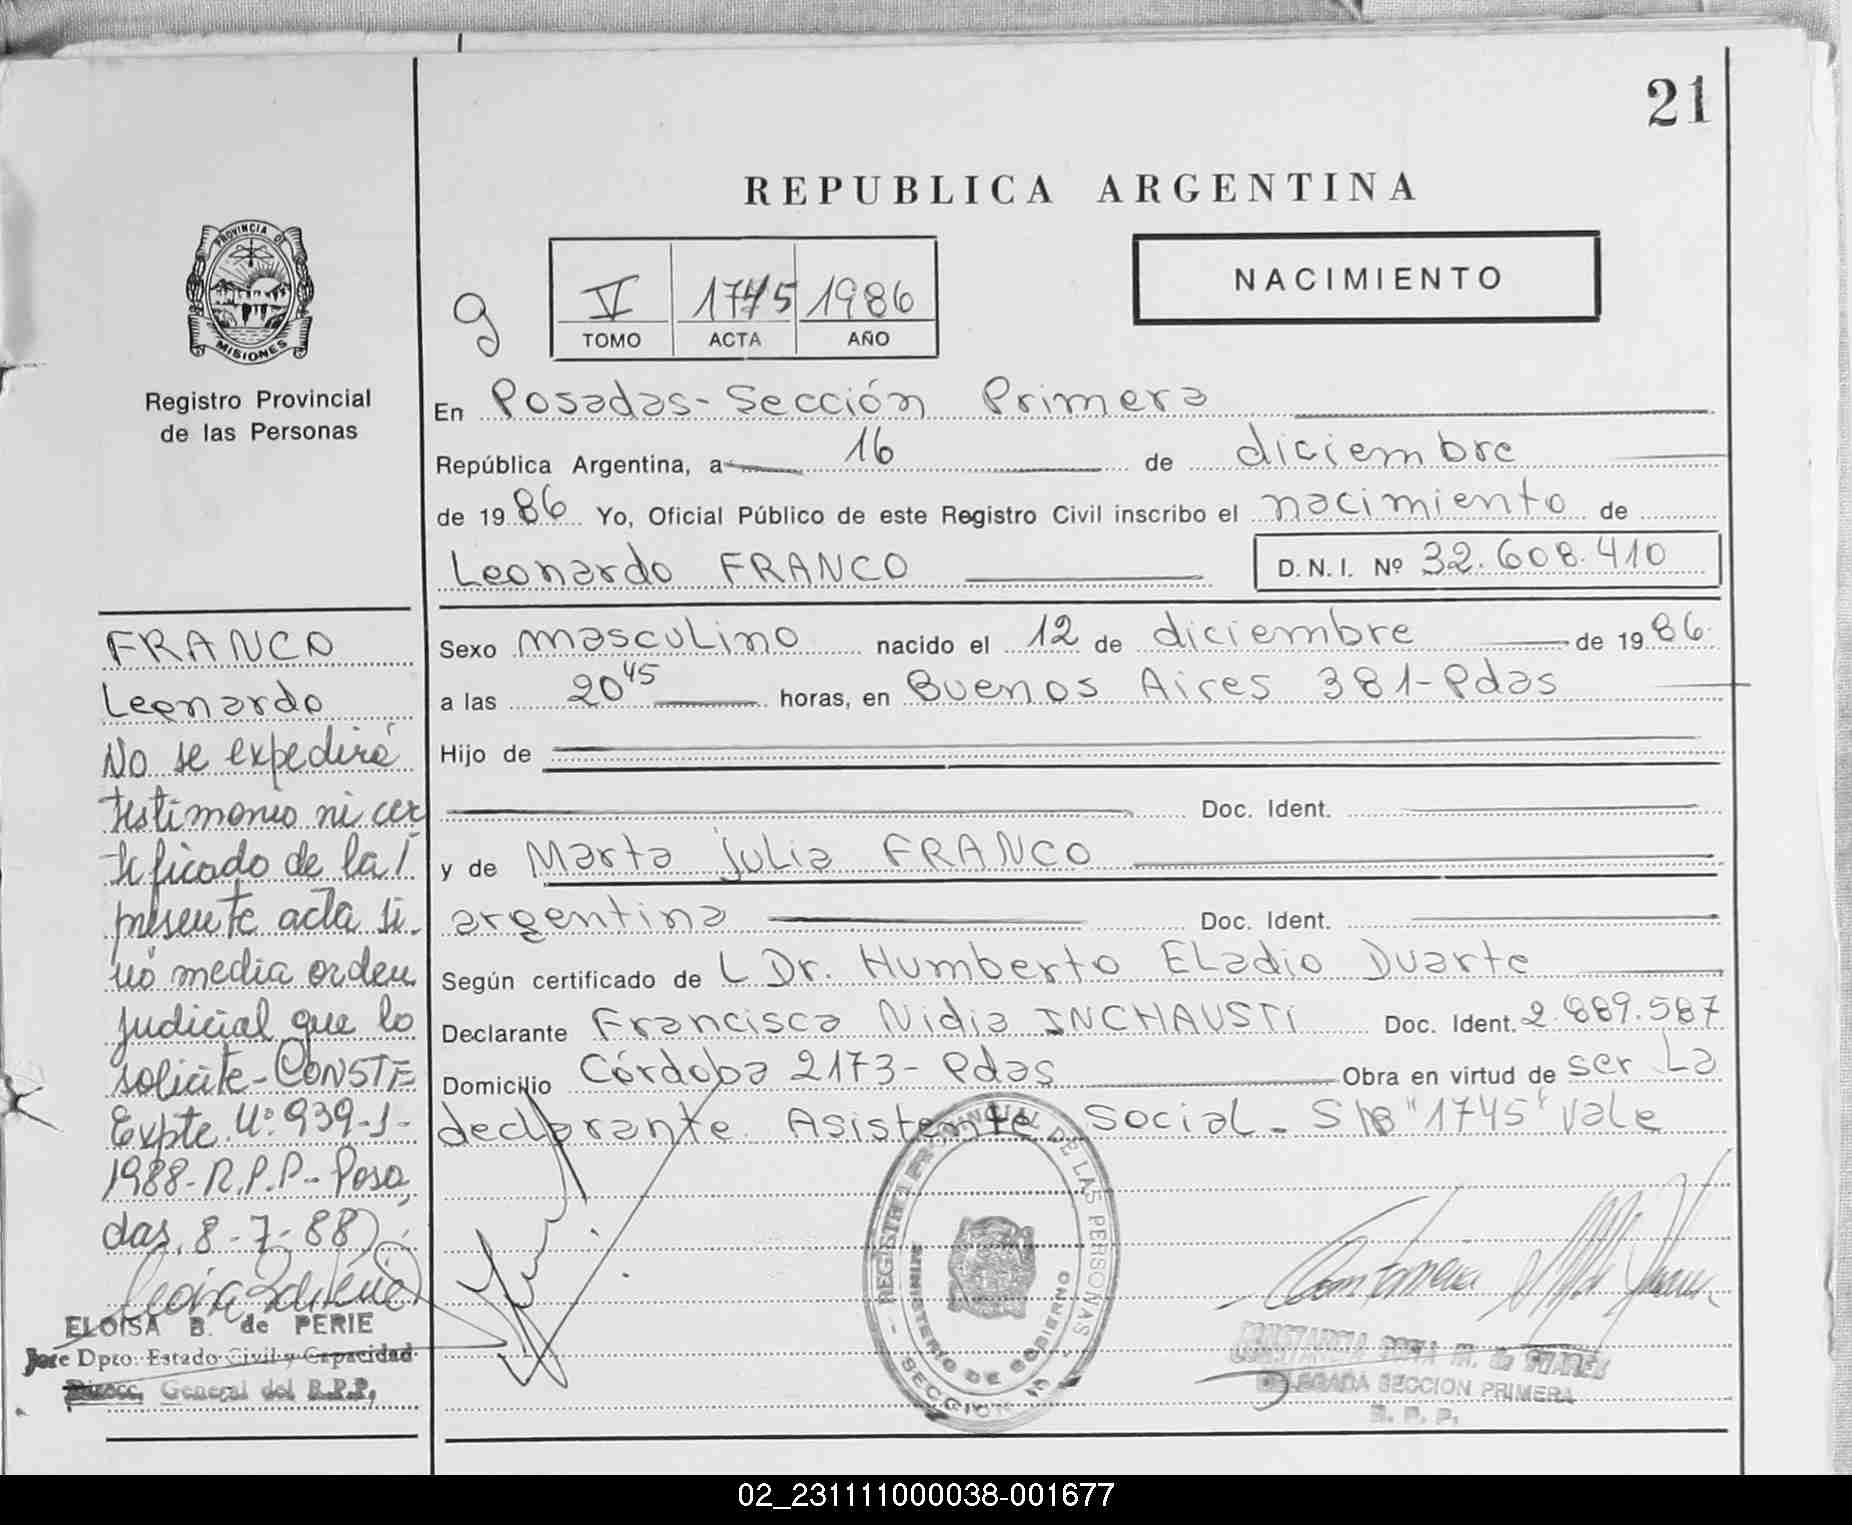 21
REPUBLICA ARGENTINA
PROVINCIA DE
MISIONES
Registro Provincial
de las Personas
g
V 1745 1986
TOMO ACTA AÑO
NACIMIENTO
En Posadas-Sección Primera
República Argentina, a 16 de diciembre
de 1986 Yo, Oficial Público de este Registro Civil inscribo el nacimiento de
Leonardo FRANCO D.N.I. Nº 32.608.410
Sexo masculino nacido el 12 de diciembre de 1986
a las 20 45 horas, en Buenos Aires 381-Pdas
Hijo de
Doc. Ident.
y de Marta Julia FRANCO
argentina Doc. Ident.
Según certificado de L Dr. Humberto Eladio Duarte
Declarante Francisca Nidia INCHAUSTI Doc. Ident. 2.889.587
Domicilio Córdoba 2173-Pdas Obra en virtud de ser La
declarante Asistente Social - S/B "1745" Vale
FRANCO
Leonardo
No se expedirá
testimonio ni cer
tificado de la
presente acta si-
nó media orden
judicial que lo
solicite-CONSTE
Expte. Nº 939-J-
1988-R.P.P-Posa
das, 8-7-88
ELOISA B. de PERIE
Jefe Dpto. Estado Civil y Capacidad
Direcc. General del R.P.P.
REGISTRO PROVINCIAL DE LAS PERSONAS
MINISTERIO DE GOBIERNO
SECCION 1a
CONSTANCIA M. de
DELEGADA SECCION PRIMERA
R. P. P.
02_231111000038-001677